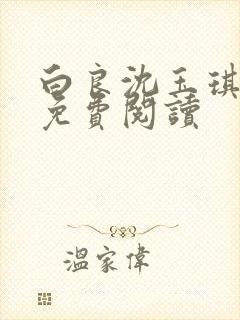 白良沈玉琪
免費閱讀
溫家偉